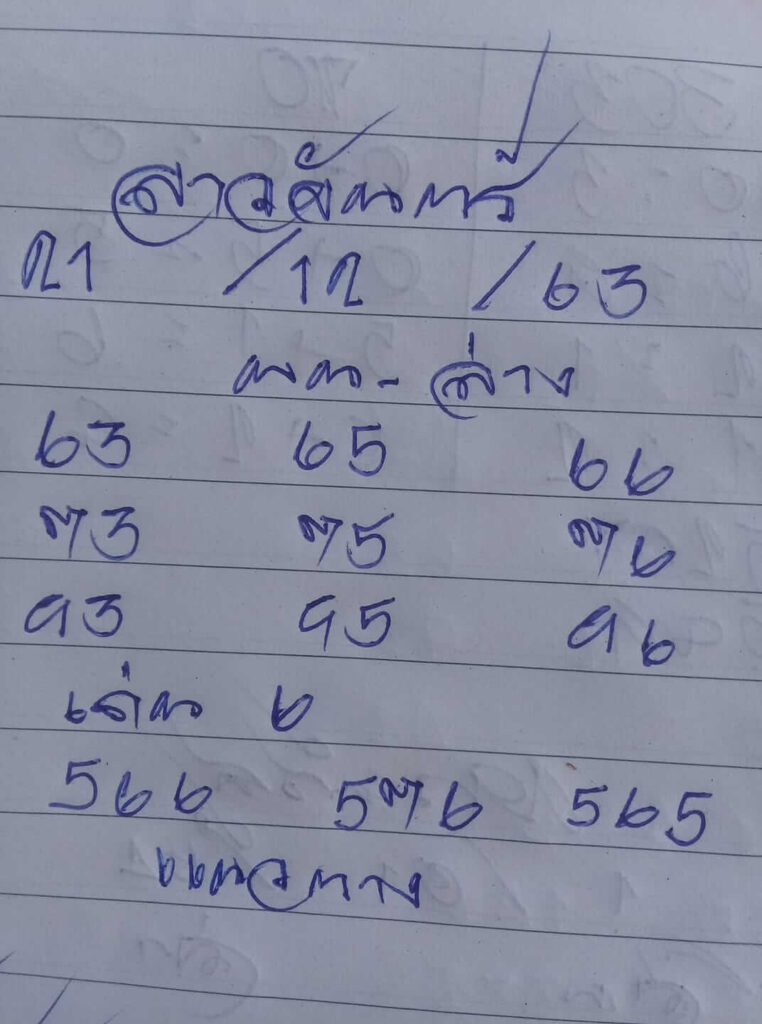 ลาวจันทร์
21 /12 /63
บน - ล่าง
63 65 66
73 75 76
93 95 96
เด่น 6
566 576 565
แนวทาง